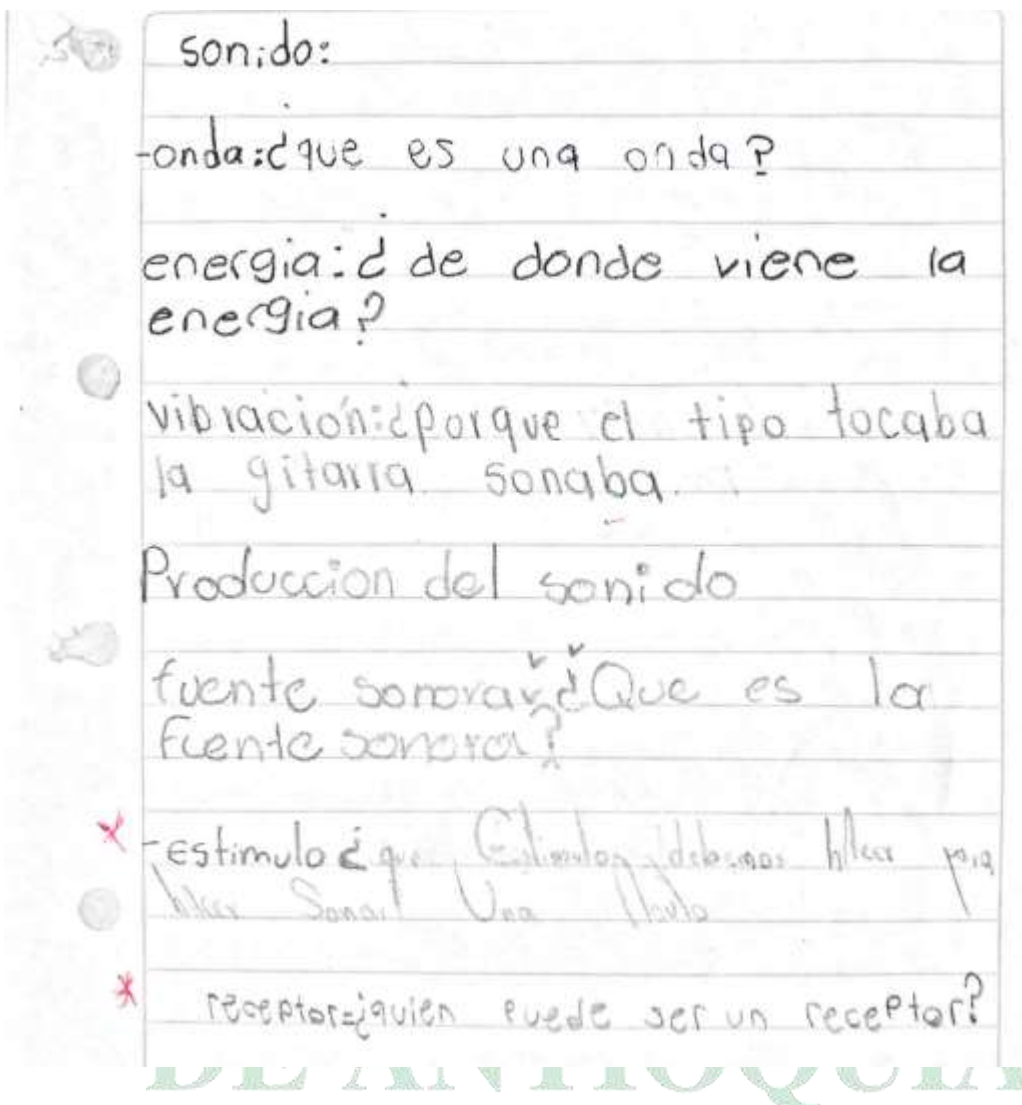 sonido:
-onda:¿que es una onda?
energia:¿de donde viene la
energia?
vibracion:¿Porque el tipo tocaba
la gitarra sonaba.
Produccion del sonido
fuente sonora:¿Que es la
fuente sonora?
-Estimulo ¿que Estimulos debemos hacer
hacer Sonar Una flauta
receptor=¿quien puede ser un receptor?
DE ANTIOQUIA